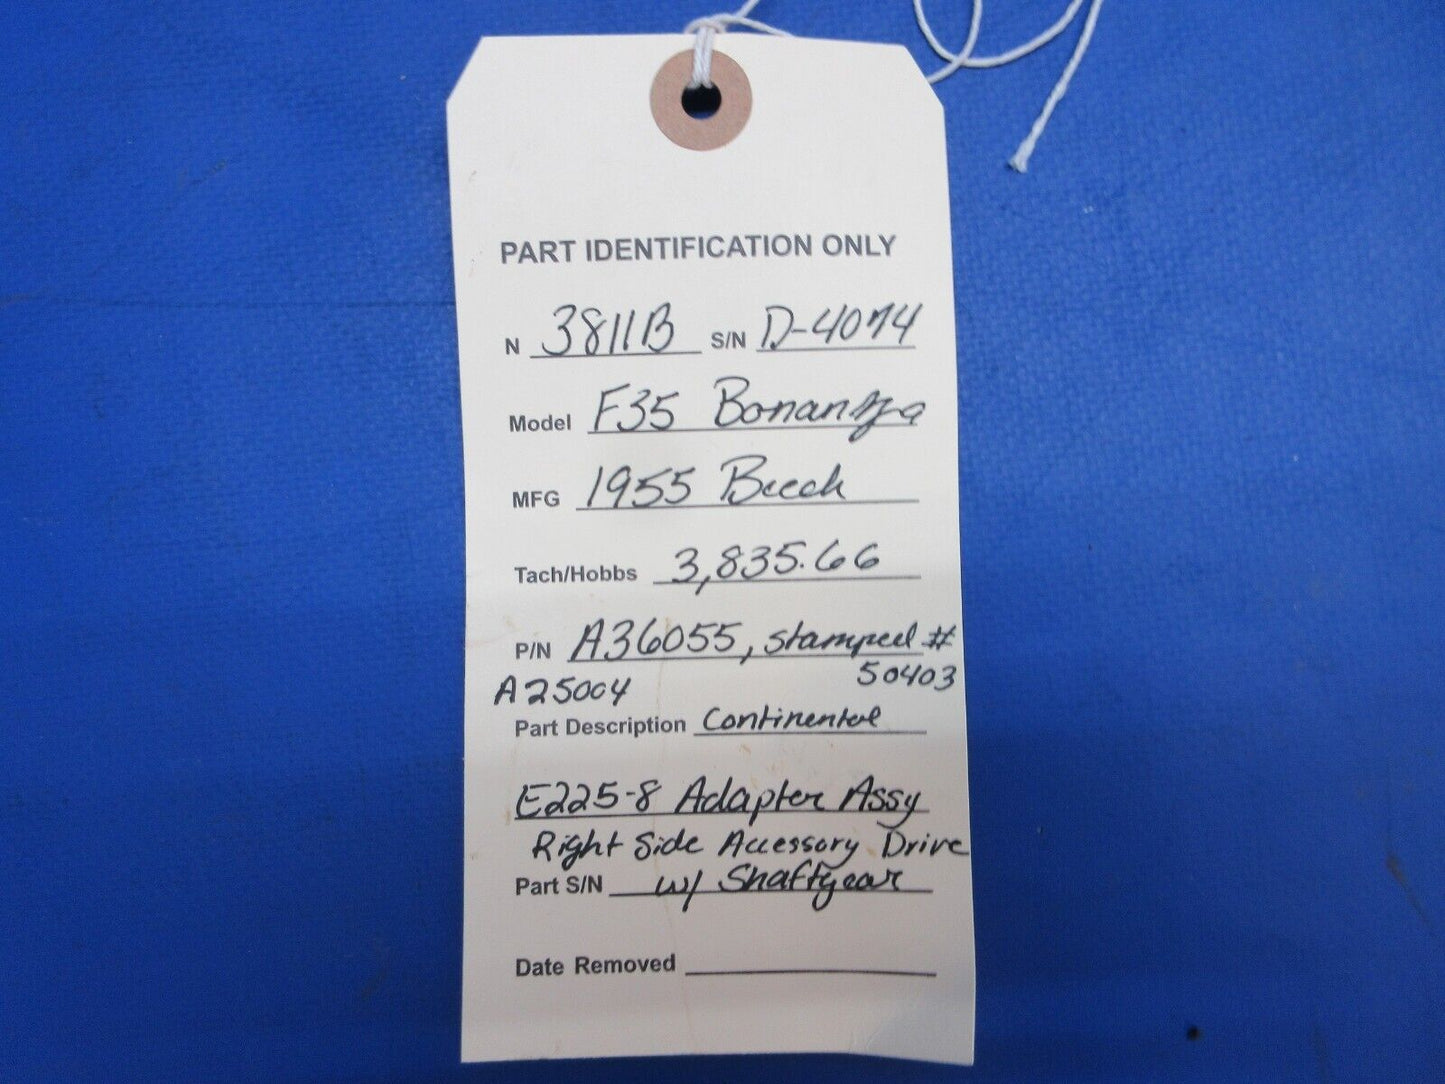 PART IDENTIFICATION ONLY
N 3811B S/N D-4074
Model F35 Bonanza
MFG 1955 Beech
Tach/Hobbs 3,835.66
P/N A36055, stamped #
A25004 50403
Part Description Continental
E225-8 Adapter Assy
Right Side Accessory Drive
Part S/N w/ Shaftgear
Date Removed